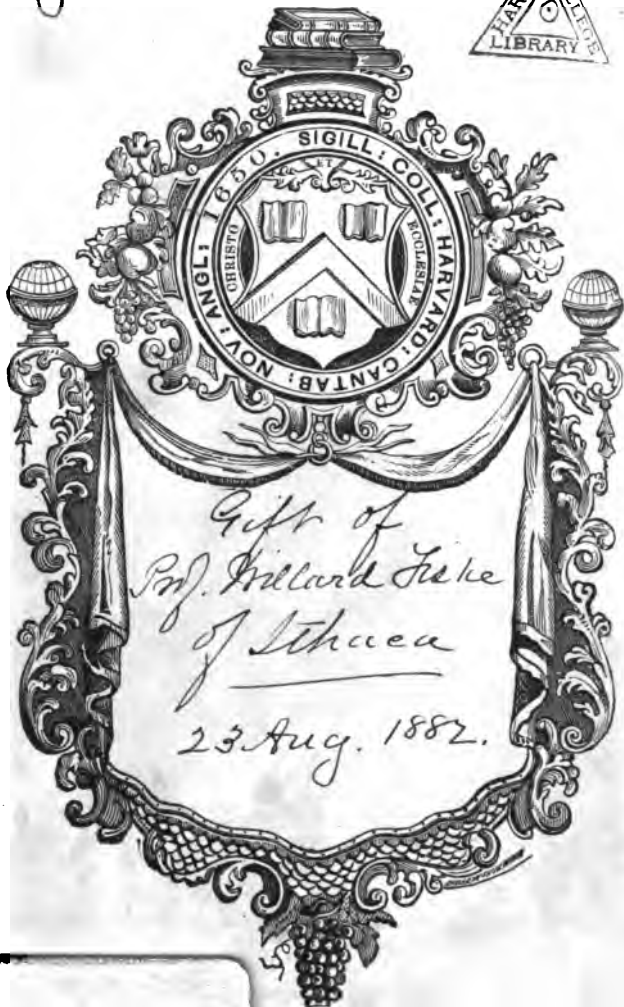 HARV COLLEGE
LIBRARY
SIGILL: COLL: HARVARD: CANTAB: NOV: ANGL: 1650.
ET
CHRISTO
ECCLESIAE
Gift of
Prof. Willard Fiske
of Ithaca
23 Aug. 1882.